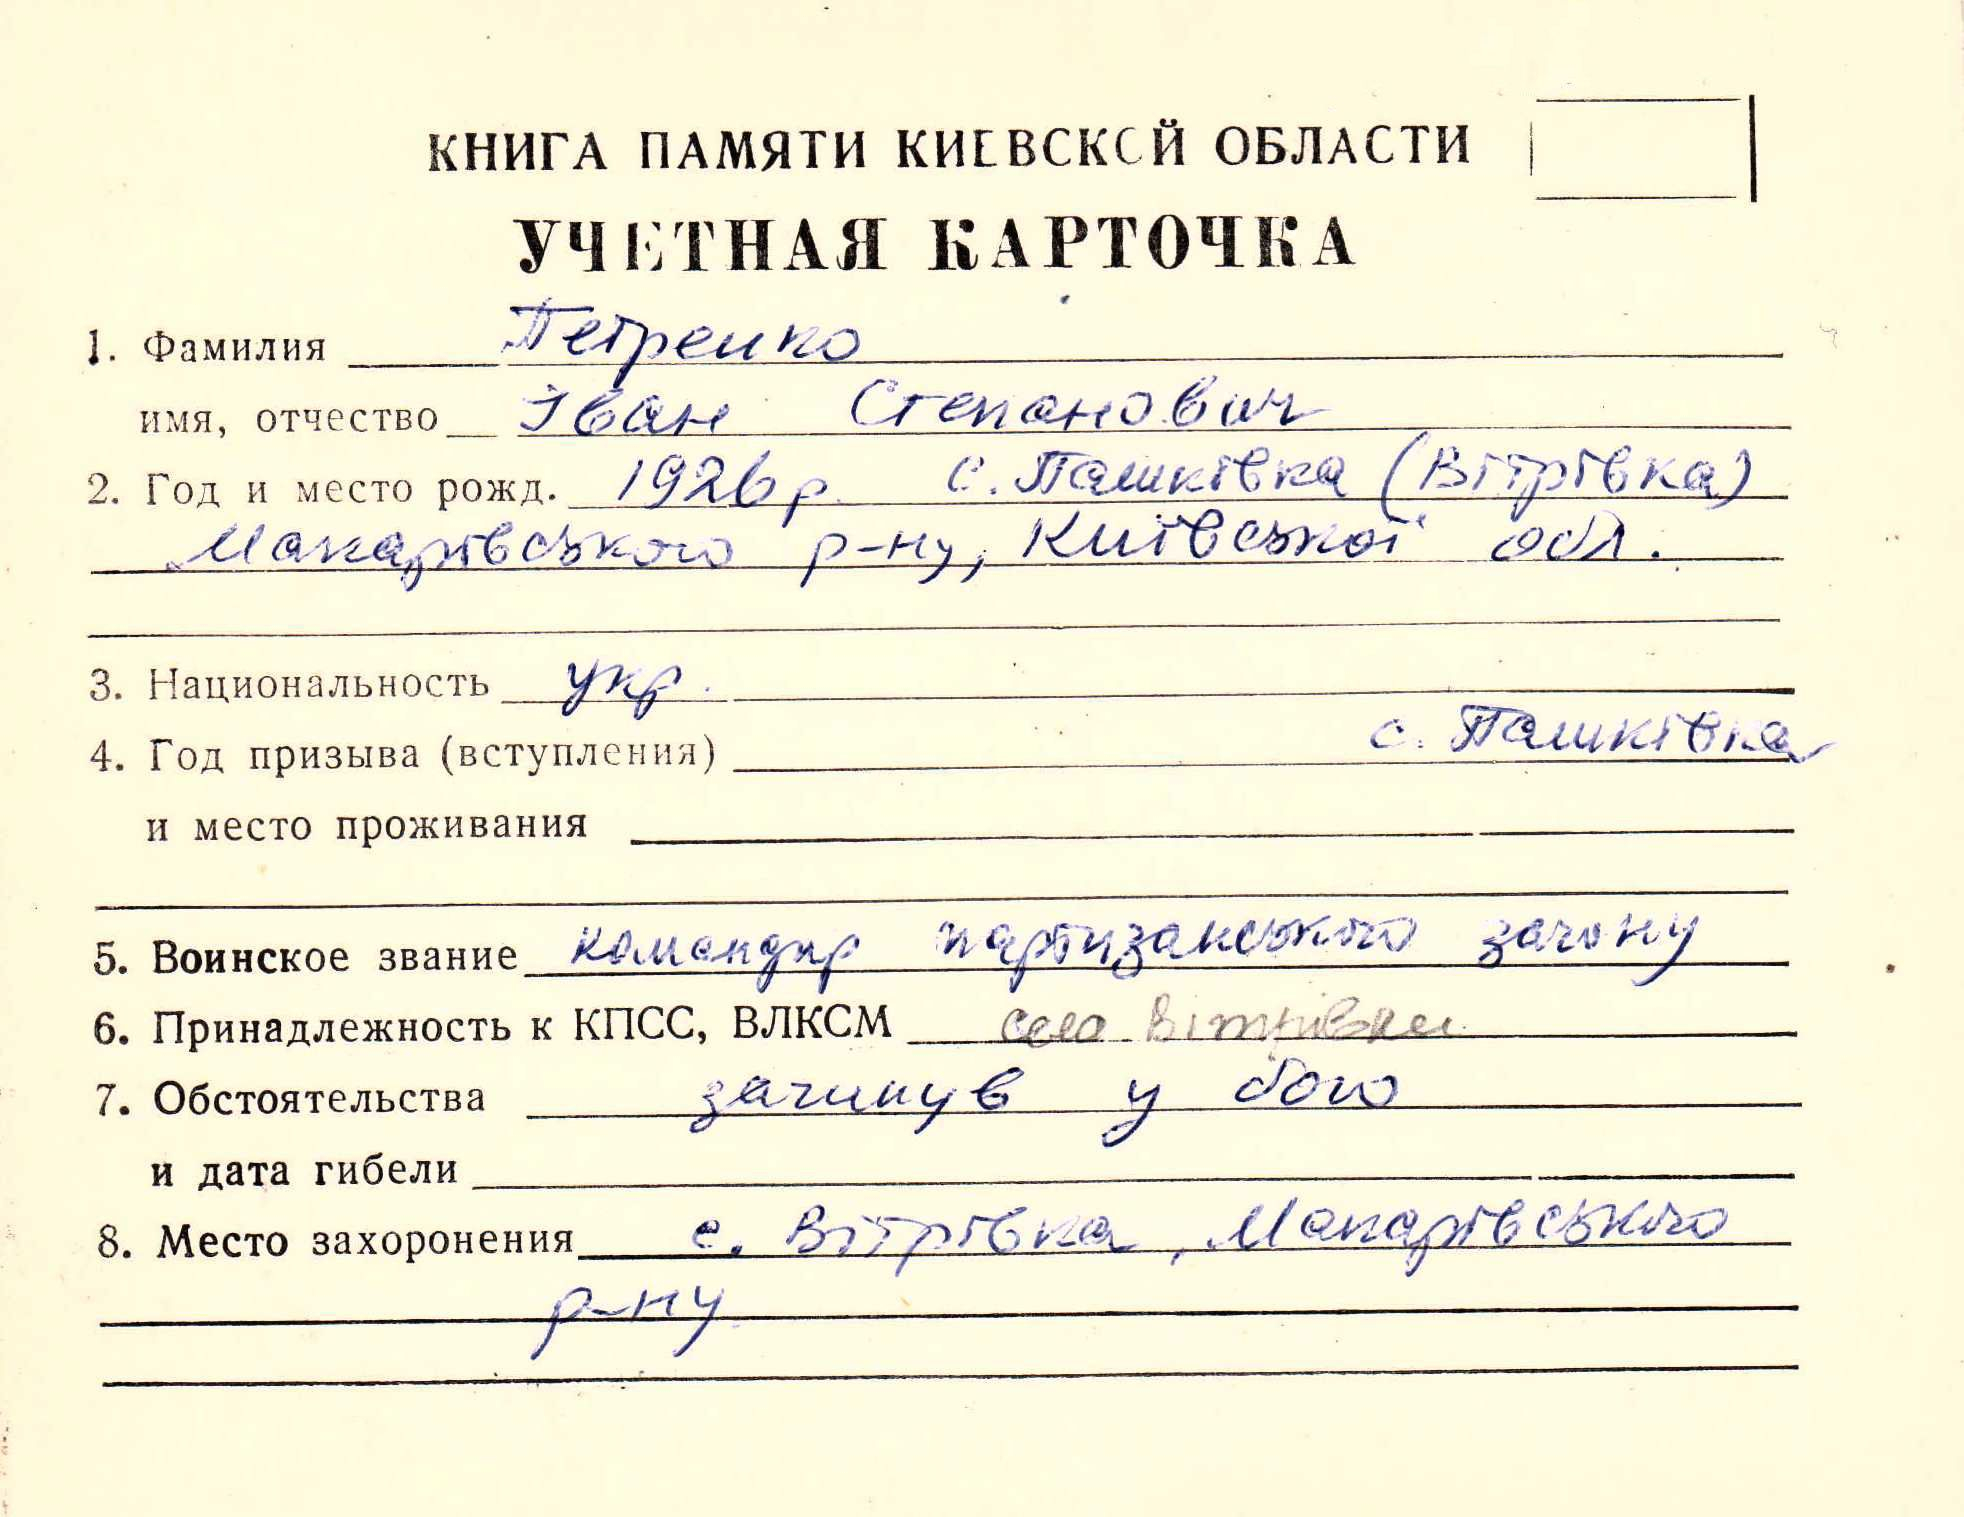 КНИГА ПАМЯТИ КИЕВСКОЙ ОБЛАСТИ
УЧЕТНАЯ КАРТОЧКА
1. Фамилия Петренко
имя, отчество Іван Степанович
2. Год и место рожд. 1926 р. с. Пашківка (Вітрівка)
Макарівського р-ну, Київської обл.
3. Национальность укр.
4. Год призыва (вступления) с. Пашківка
и место проживания
5. Воинское звание командир партизанського загону
6. Принадлежность к КПСС, ВЛКСМ село Вітрівки
7. Обстоятельства загинув у бою
и дата гибели
8. Место захоронения с. Вітрівка, Макарівського
р-ну